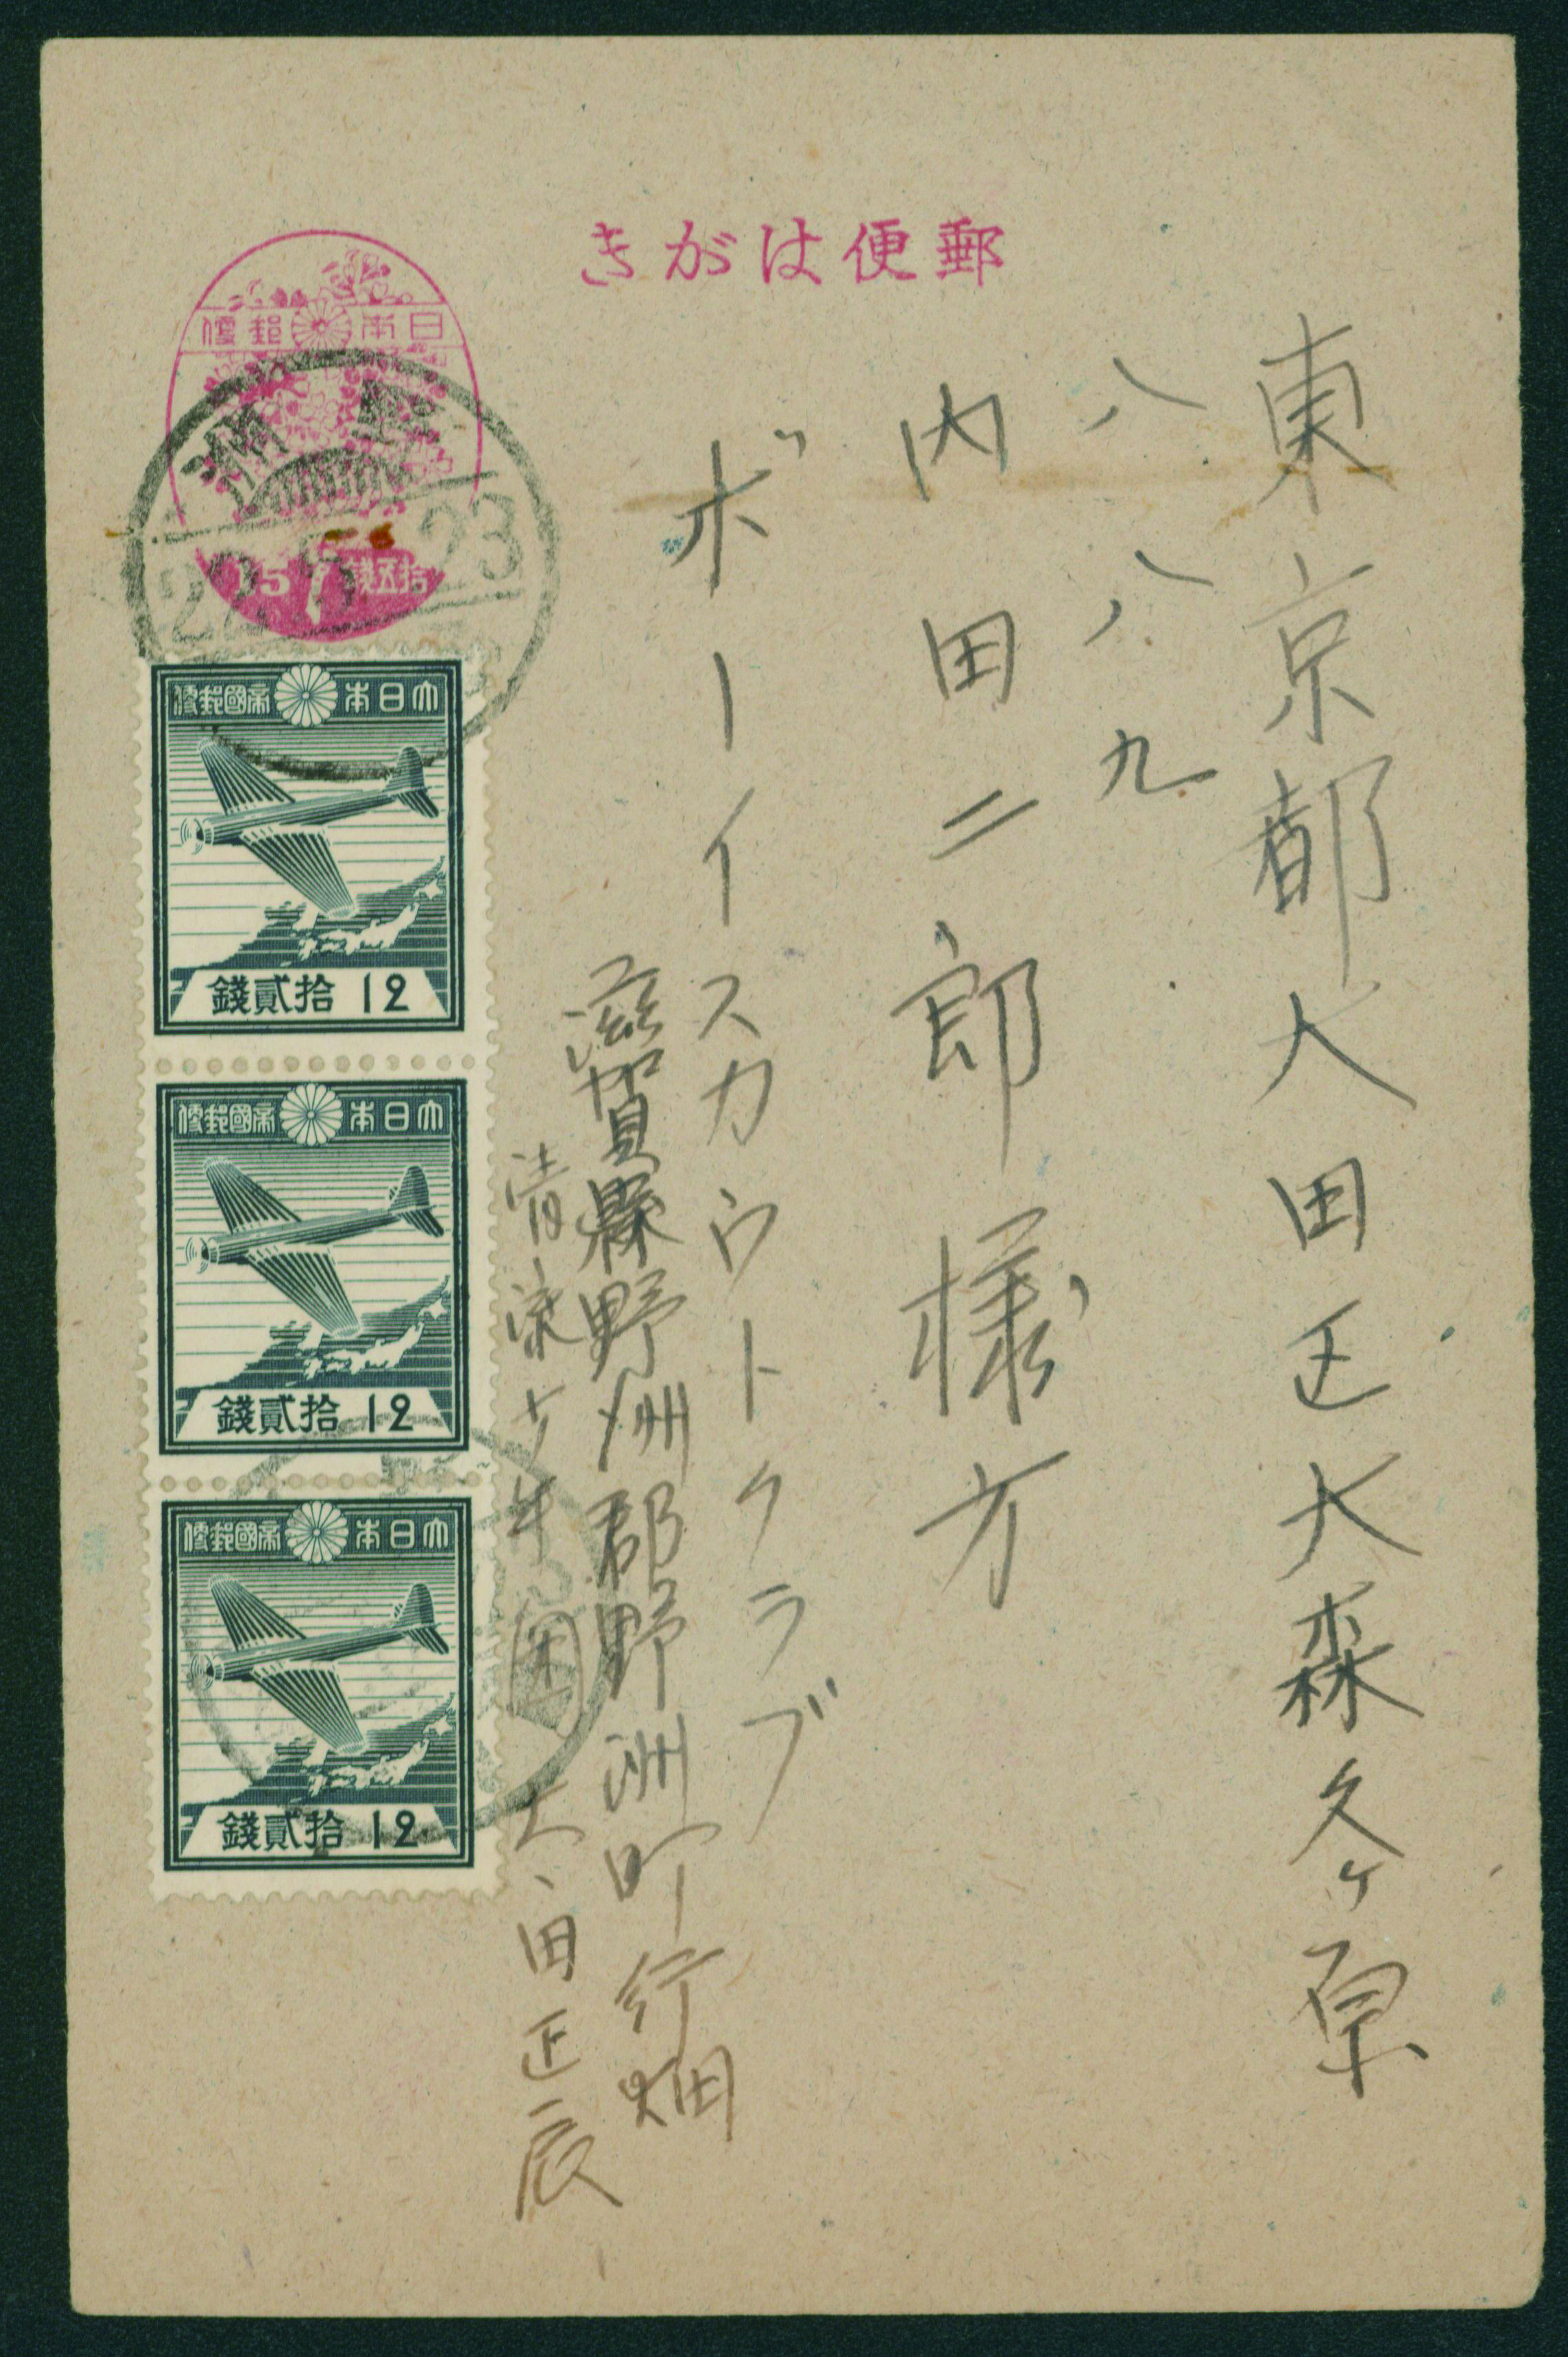 郵便はがき
日本郵便
15 拾五銭
22. 23
東京都大田区大森久ヶ原
八八九
内田二郎様方
ボーイスカウトクラブ
滋賀縣野洲郡野洲町行畑
少年団
大田正辰
大日本帝國郵便
拾貳錢 12
大日本帝國郵便
拾貳錢 12
大日本帝國郵便
拾貳錢 12